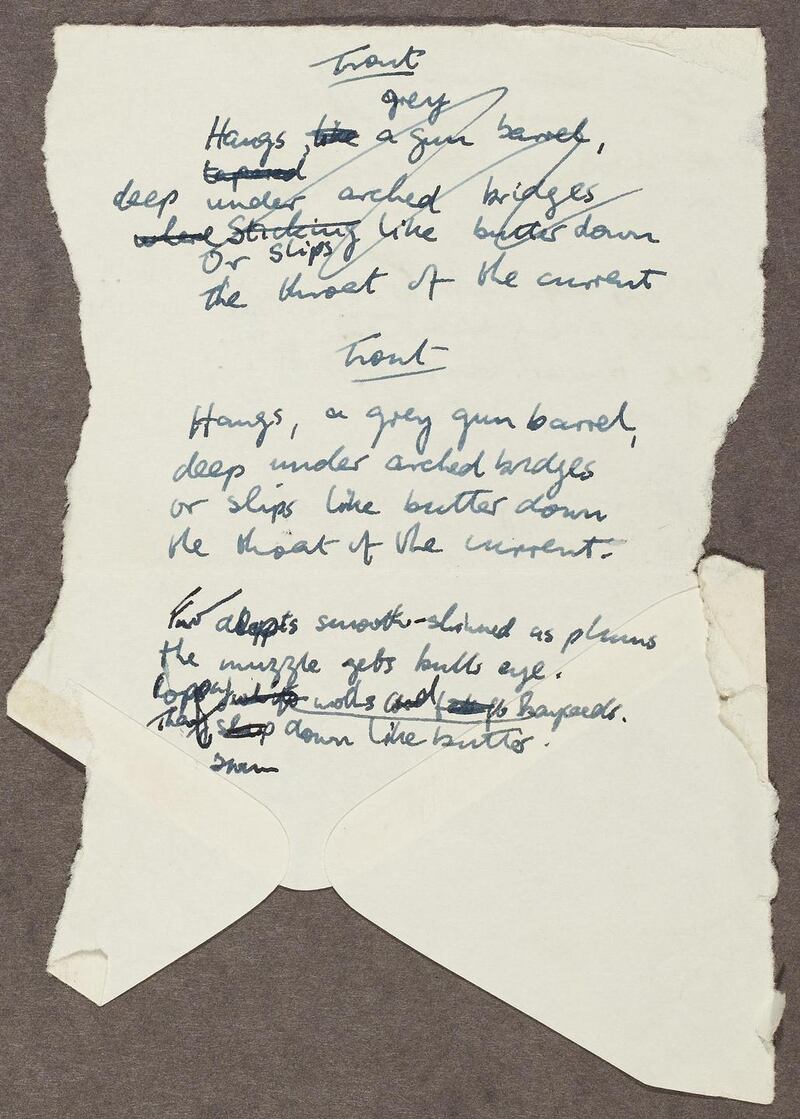 Trout
grey
Hangs like a gun barrel,
tapered
deep under arched bridges
where sticking like butter down
Or slips
the throat of the current
Trout
Hangs, a grey gun barrel,
deep under arched bridges
or slips like butter down
the throat of the current.
smooth-skinned as plums
the muzzle gets bulls eye.
moths and
down like butter.